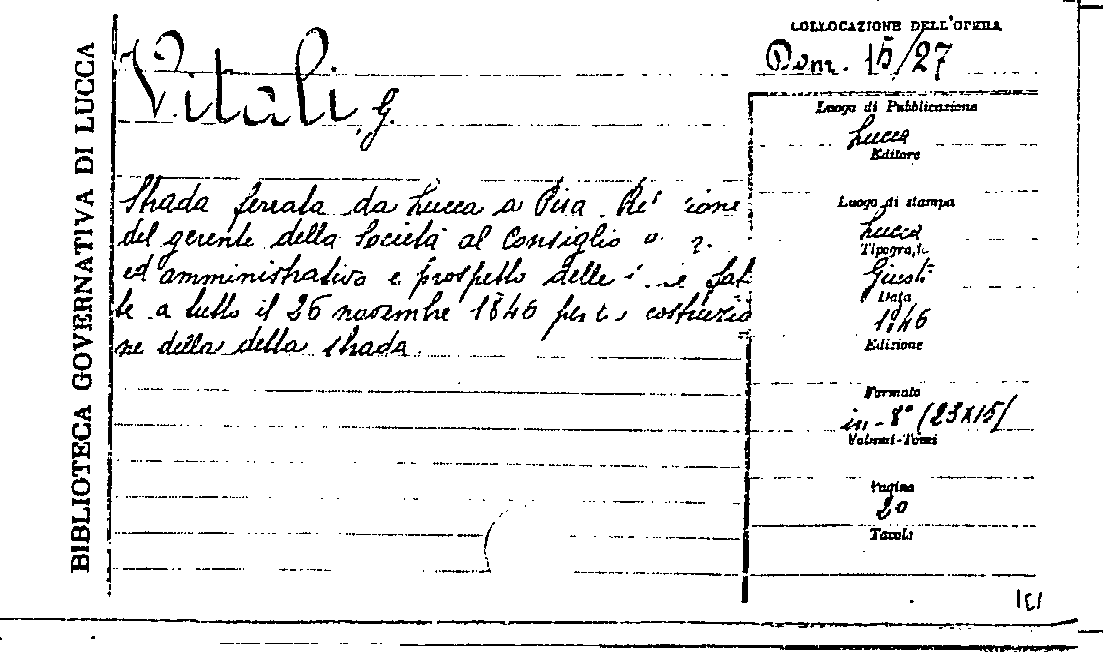 BIBLIOTECA GOVERNATIVA DI LUCCA
Vitali, G.
Strada ferrata da Lucca a Pisa.
del gerente della Società al Consiglio
ed amministrativo e prospetto delle fat
te a tutto il 26 novembre 1846 per costruzio
ne della della strada
COLLOCAZIONE DELL'OPERA
15/27
Luogo di Pubblicazione
Lucca
Editore
Luogo di stampa
Lucca
Tipografo
Giusti
Data
1846
Edizione
Formato
in-8° (23x15)
Volumi-Tomi
Pagine
20
Tavole